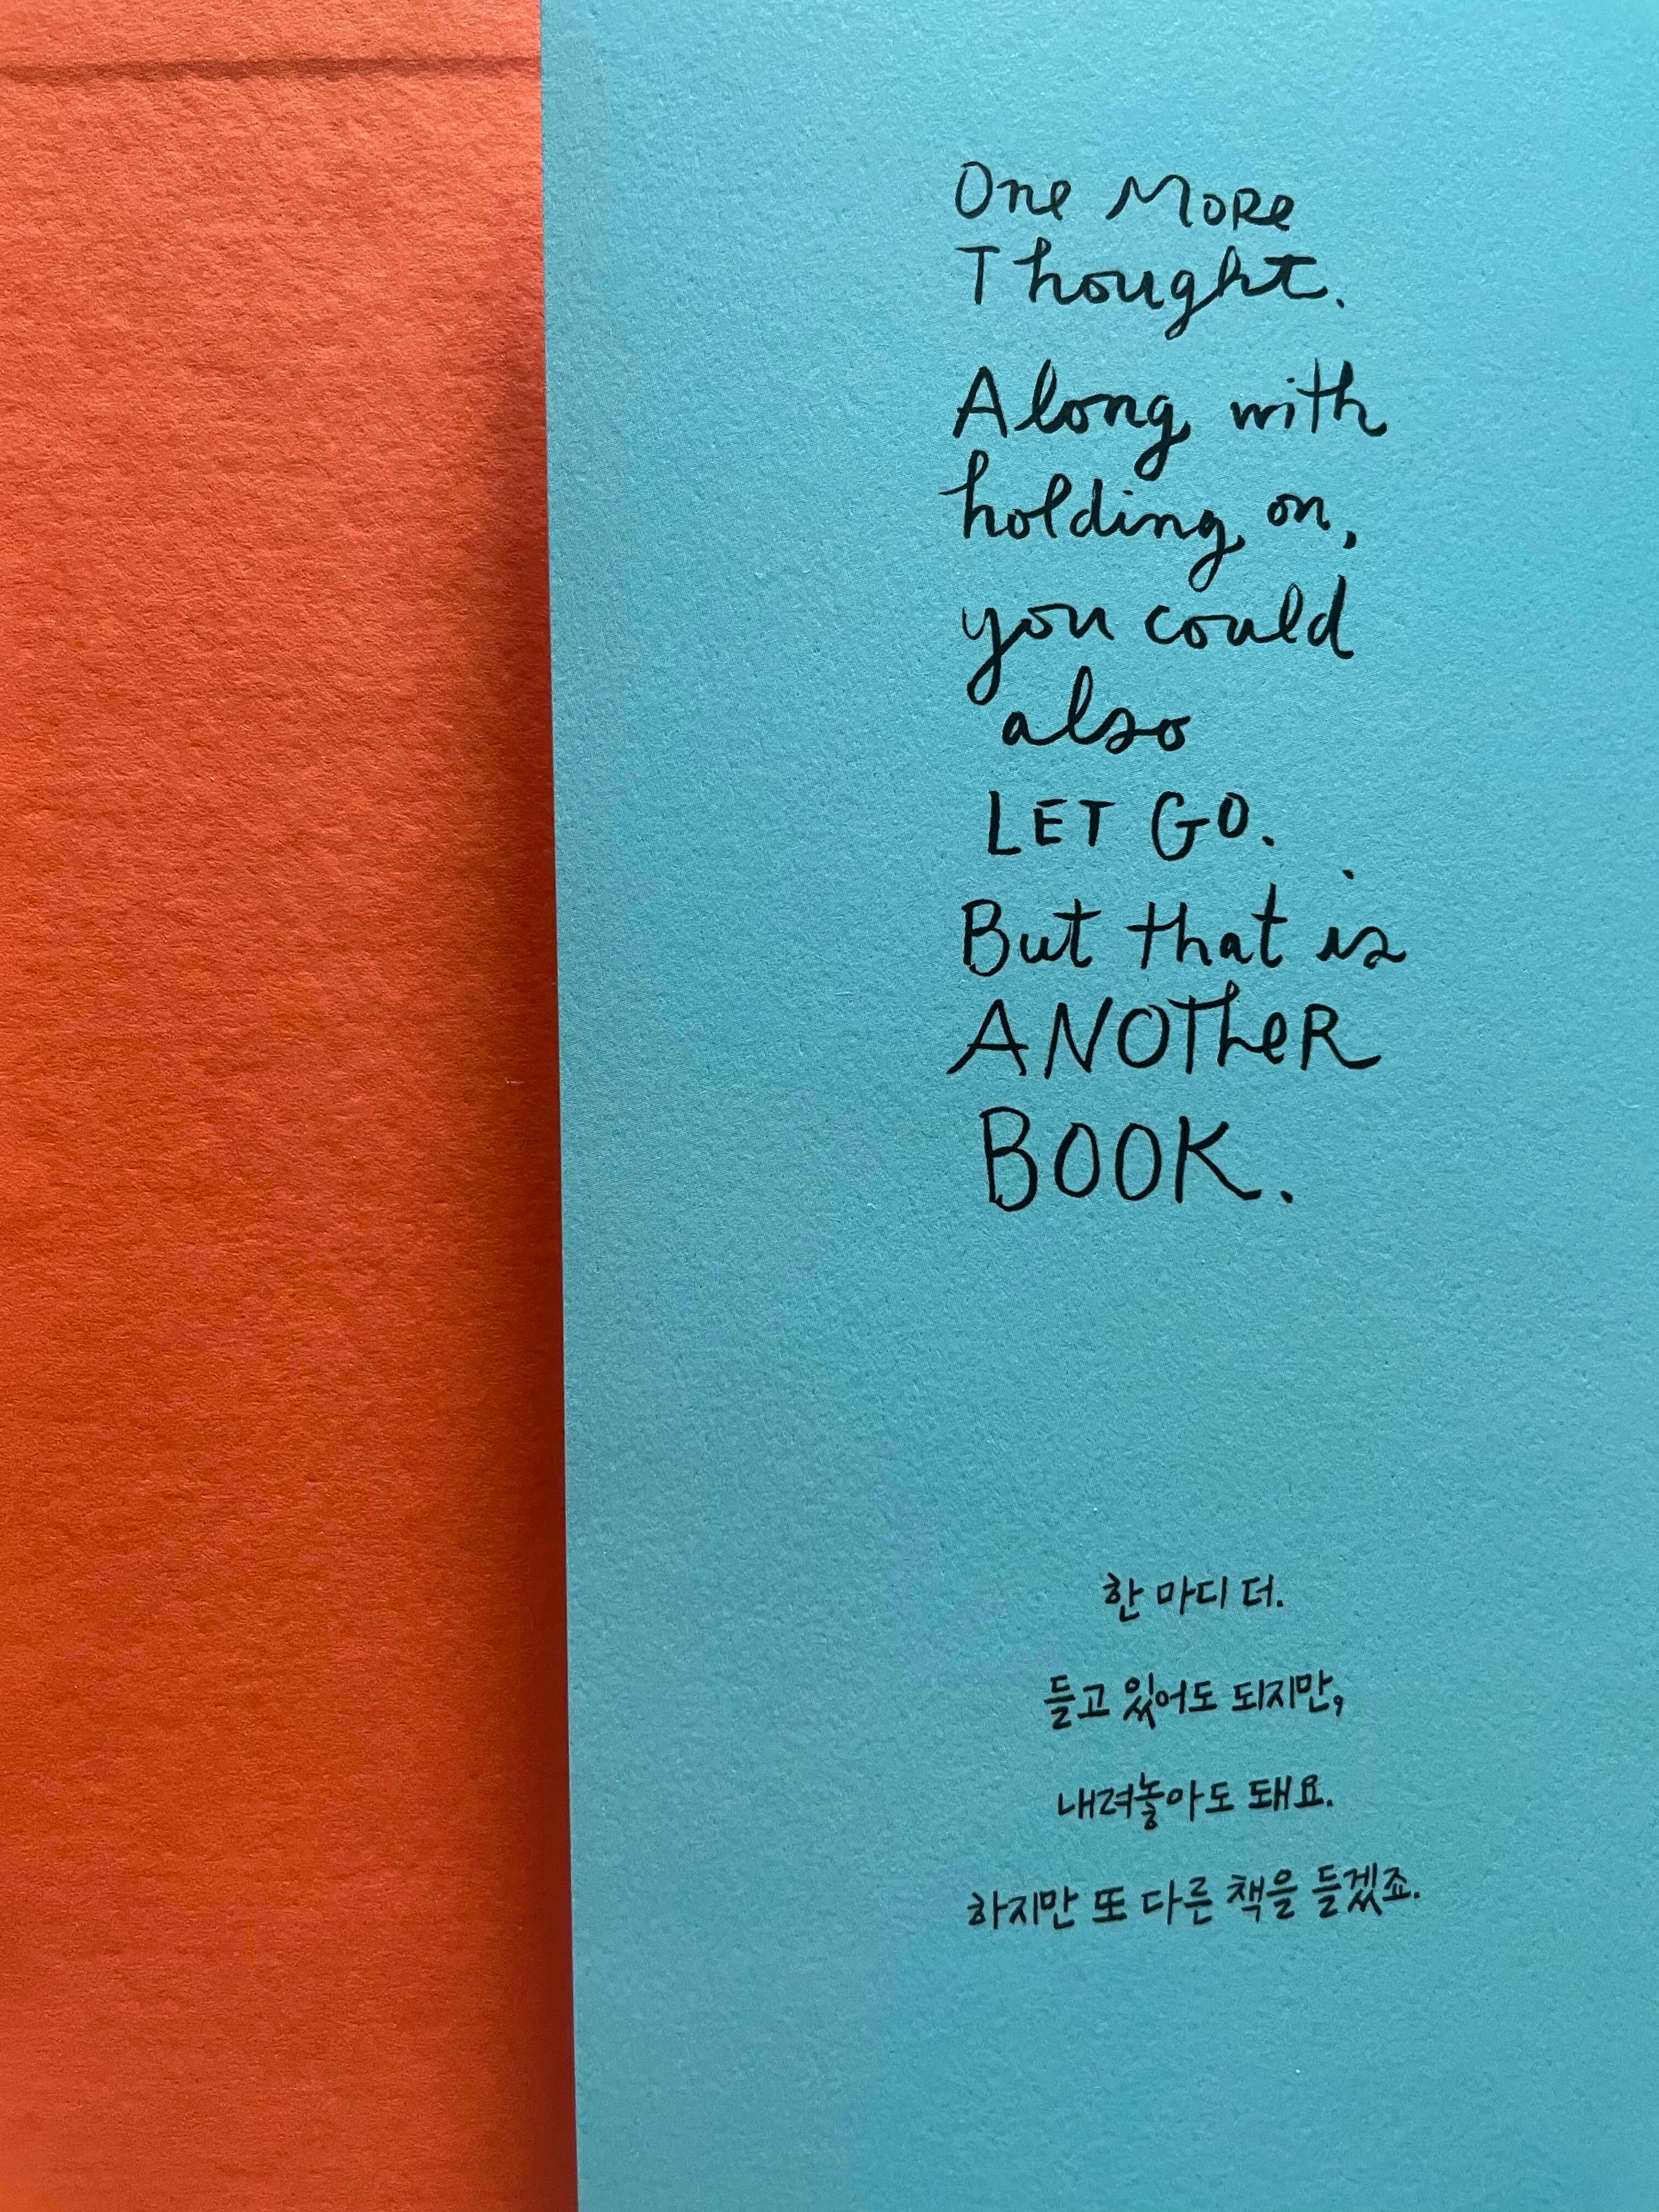 One More
Thought.
Along with
holding on,
you could
also
LET GO.
But that is
ANOTHeR
BOOK.
한 마디 더.
들고 있어도 되지만,
내려놓아도 돼요.
하지만 또 다른 책을 들겠죠.